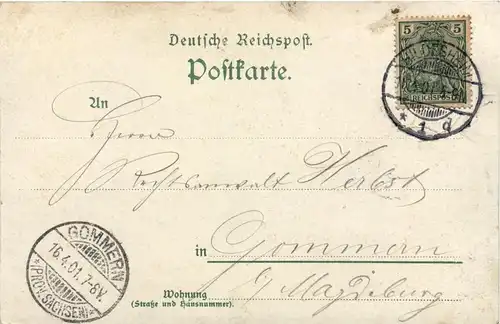 Deutsche Reichspost.
Postkarte.
5 5
REICHSPOST
* 1 d
An
Herrn
Rechtsanwalt Herbst
in Gommern
b/ Magdeburg
Wohnung
(Straße und Hausnummer).
GOMMERN
16.4.01.7-8V.
*(PROV. SACHSEN)*